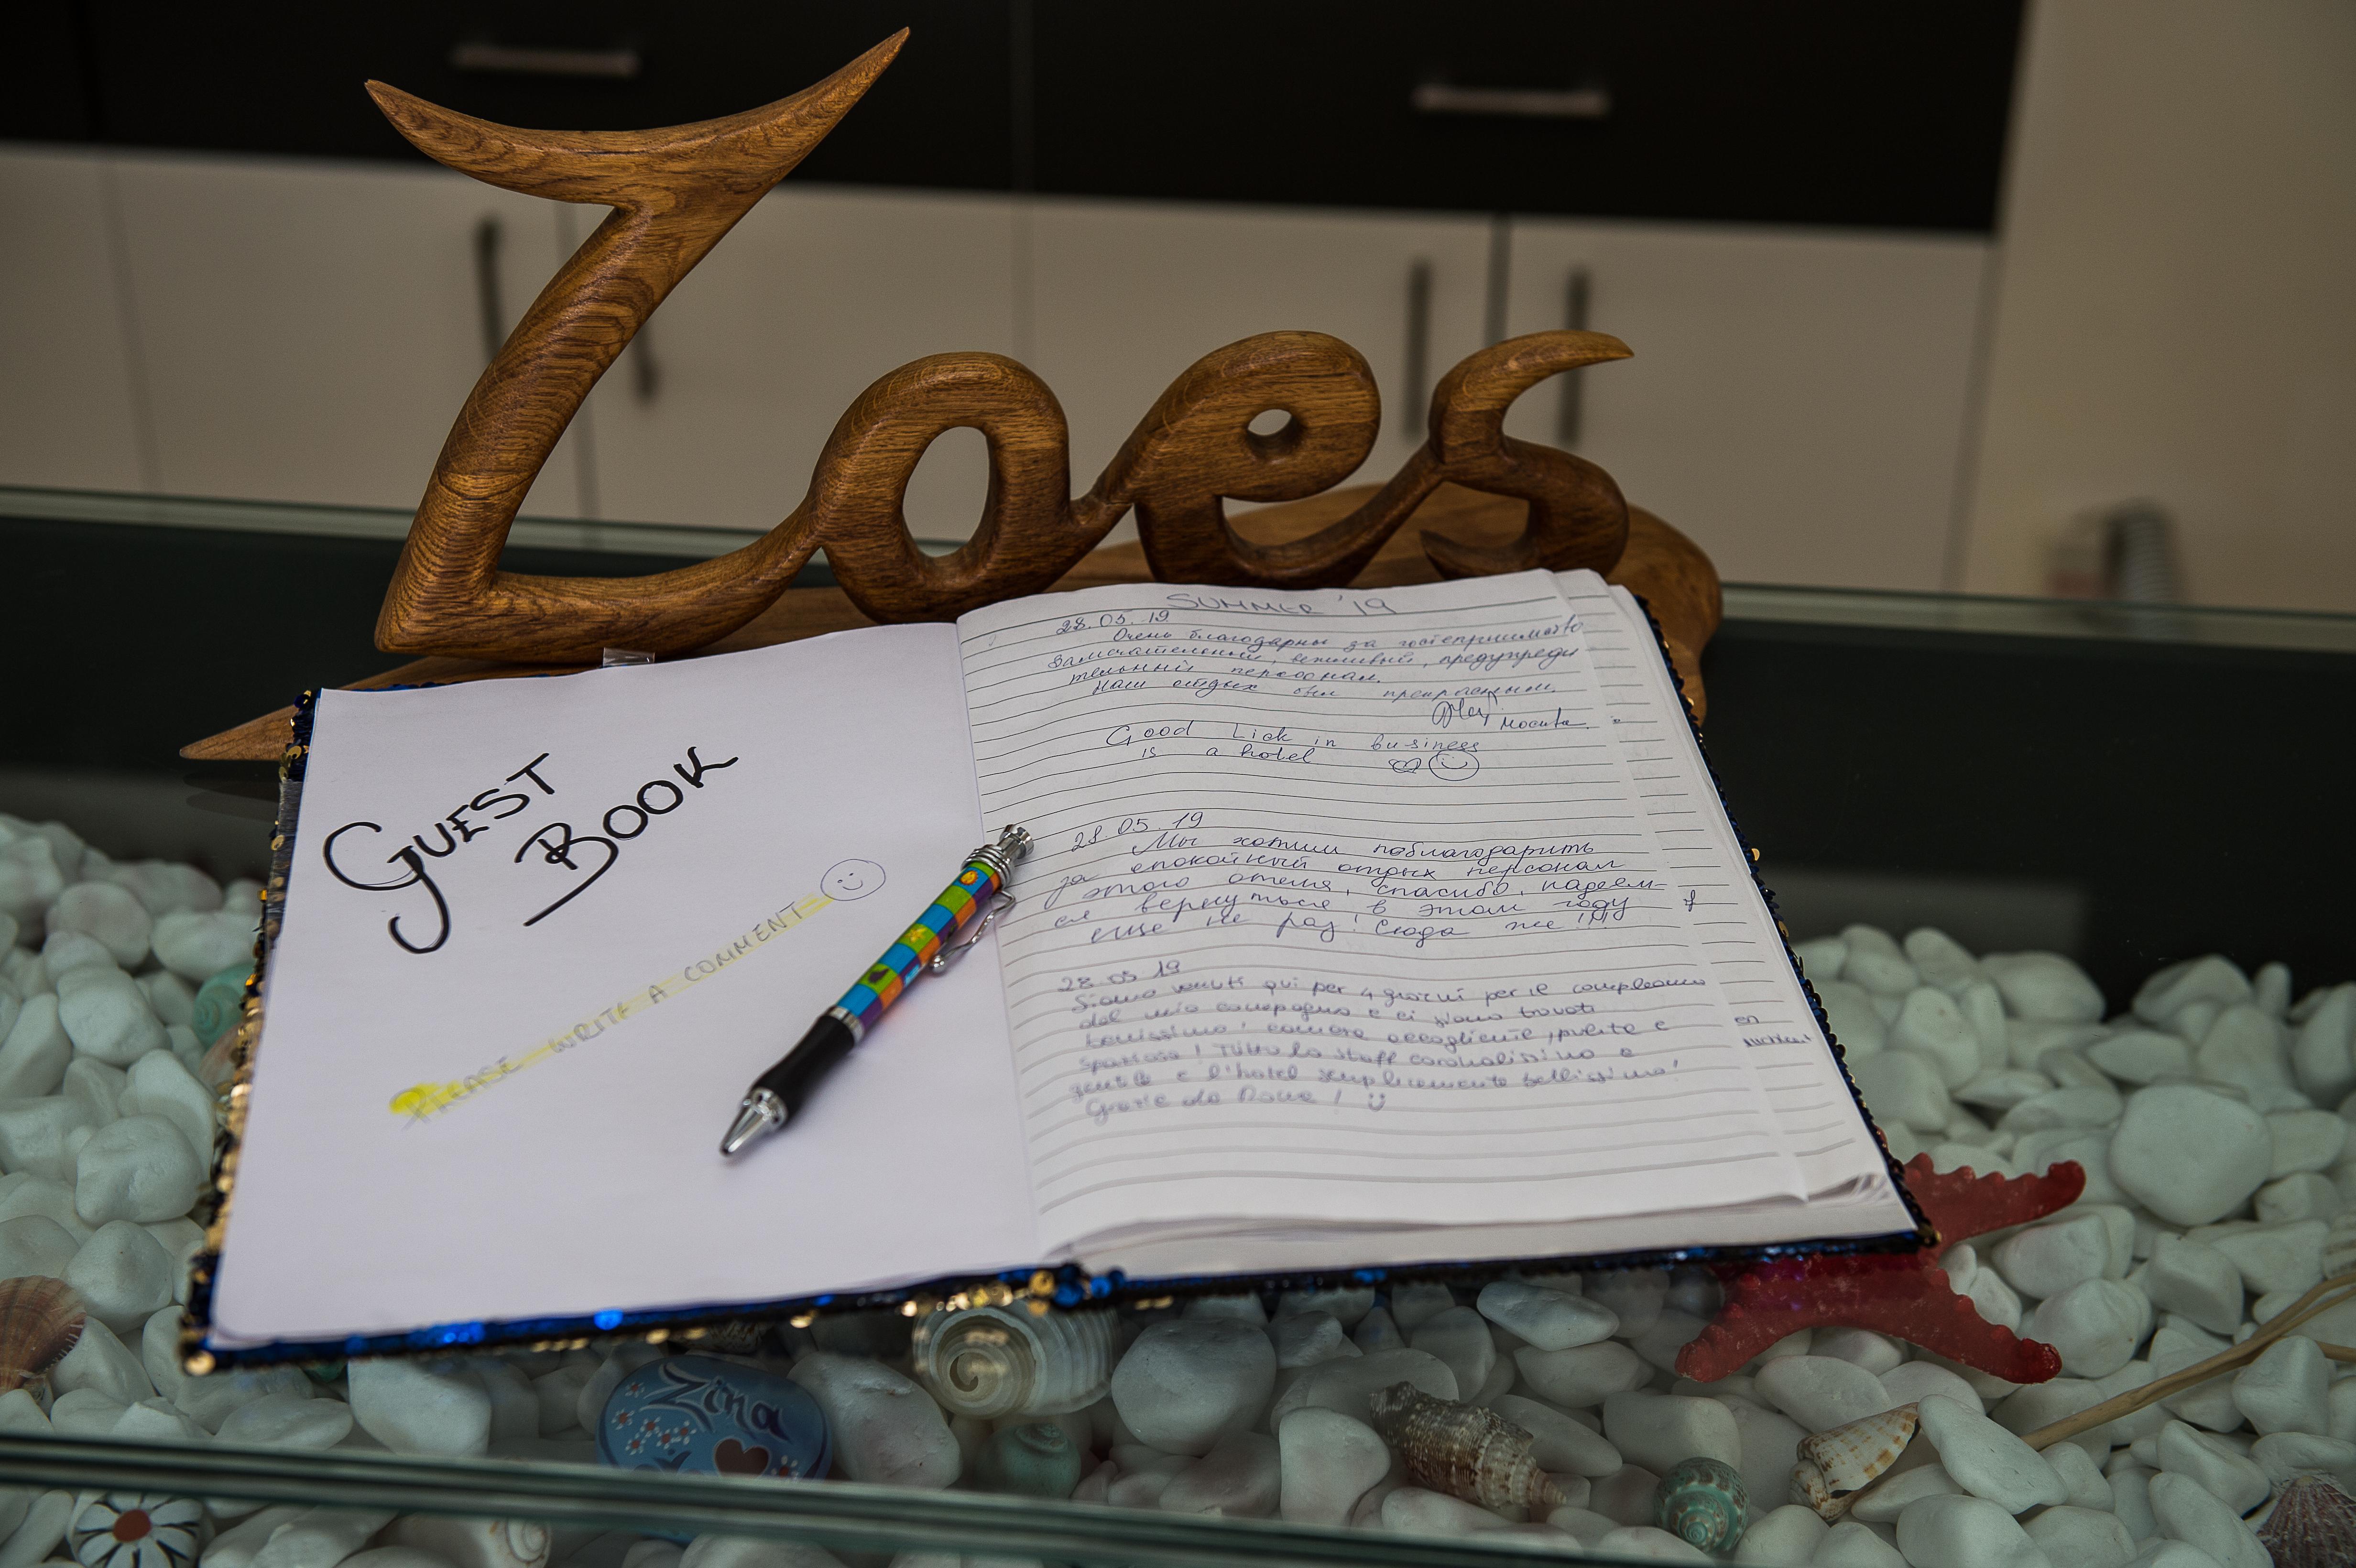 Zoes
GUEST
BOOK
PLEASE WRITE A COMMENT
SUMMER '19
28.05.19
Очень благодарны за гостеприимство
Замечательный, вежливый, предупреди
тельный персонал.
Наш отдых был прекрасным.
Москва
Good Lick in business
is a hotel
28.05.19
Мы хотим поблагодарить
за спокойный отдых персонал
этого отеля, спасибо, надеем-
ся вернуться в этом году
еще не раз! Сюда же!!!!
28.05.19
Siamo venuti qui per 4 giorni per il compleanno
del mio compagno e ci siamo trovati
benissimo! camera accogliente, pulita e
spaziosa! Tutto lo staff cordialissimo e
gentile e l'hotel semplicemente bellissimo!
Grazie da Roma!
en
Zina